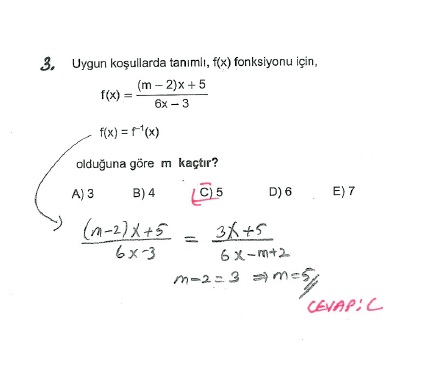 3. Uygun koşullarda tanımlı, f(x) fonksiyonu için,
f(x) = (m – 2)x + 5 / 6x – 3
f(x) = f⁻¹(x)
olduğuna göre m kaçtır?
A) 3 B) 4 C) 5 D) 6 E) 7
(m-2)x+5 / 6x-3 = 3x+5 / 6x-m+2
m-2=3 ⇒ m=5
CEVAP: C